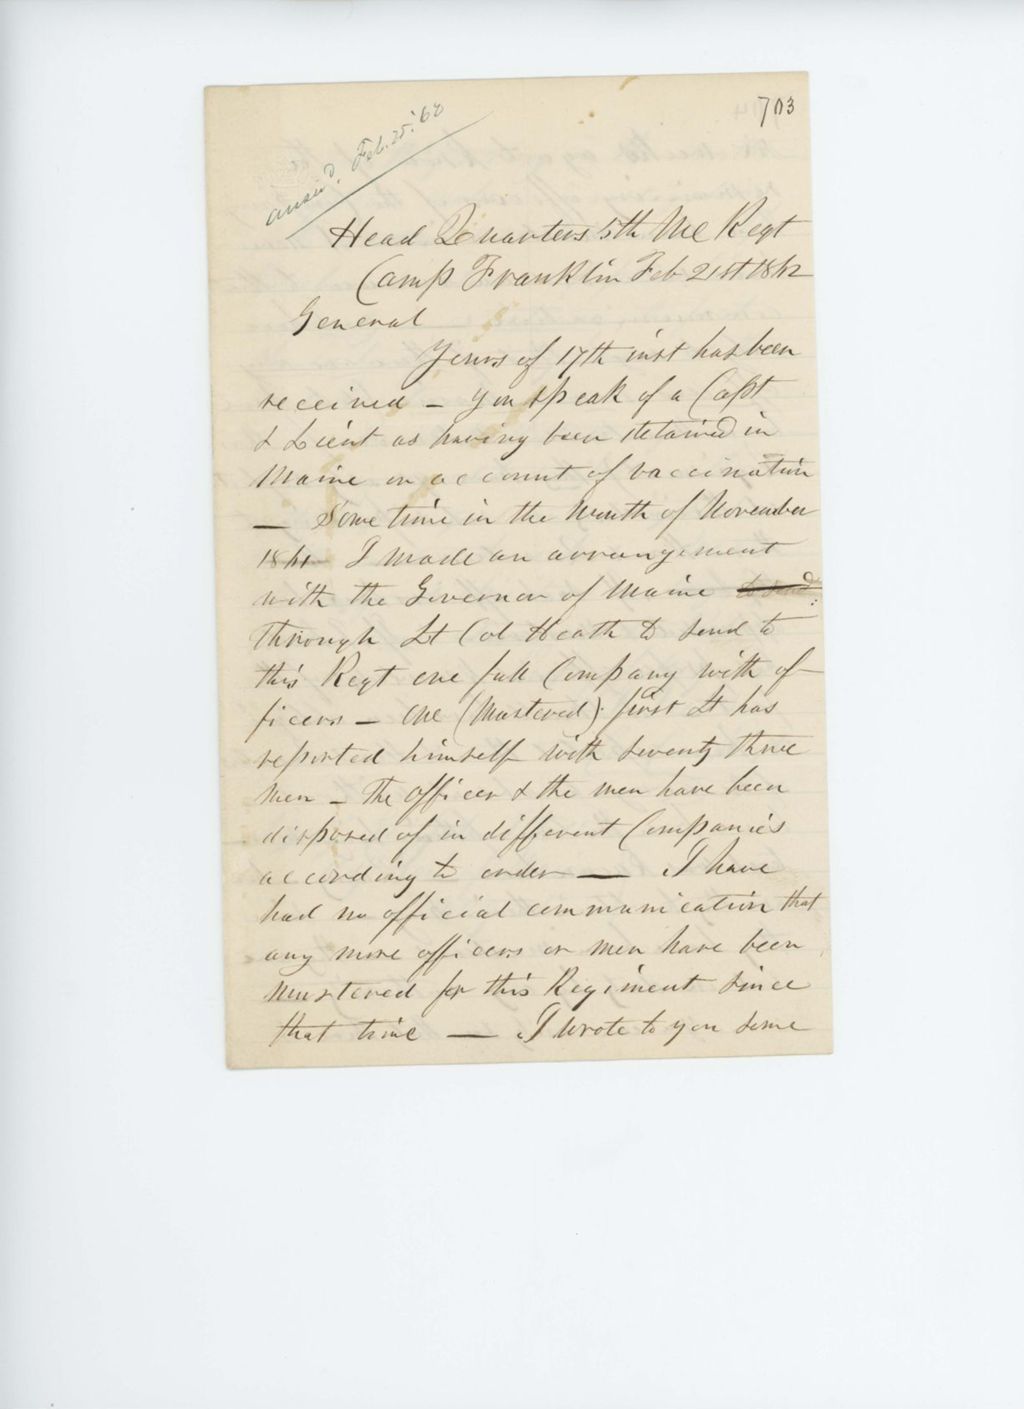 703
answd. Feb. 25. '62
Head Quarters 5th Me Regt
Camp Franklin Feb 21st 1862
General
Yours of 17th inst has been
received – you speak of a Capt
& Lieut as having been detained in
Maine on account of vaccination
— Some time in the Month of November
1861 I made an arrangement
with the Governor of Maine to send
through Lt Col Heath to send to
this Regt one full Company with of-
ficers – One (Mustered) first Lt has
reported himself with seventy three
men – The officer & the men have been
disposed of in different Companies
according to order — I have
had no official communication that
any more officers or men have been
mustered for this Regiment since
that time — I wrote to you some